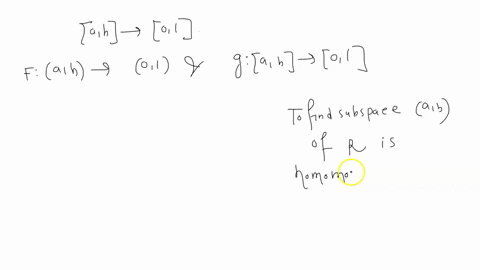 [a,b] → [0,1]
F: (a,b) → (0,1) & g: [a,b] → [0,1]
To find subspace (a,b)
of R is
homomo